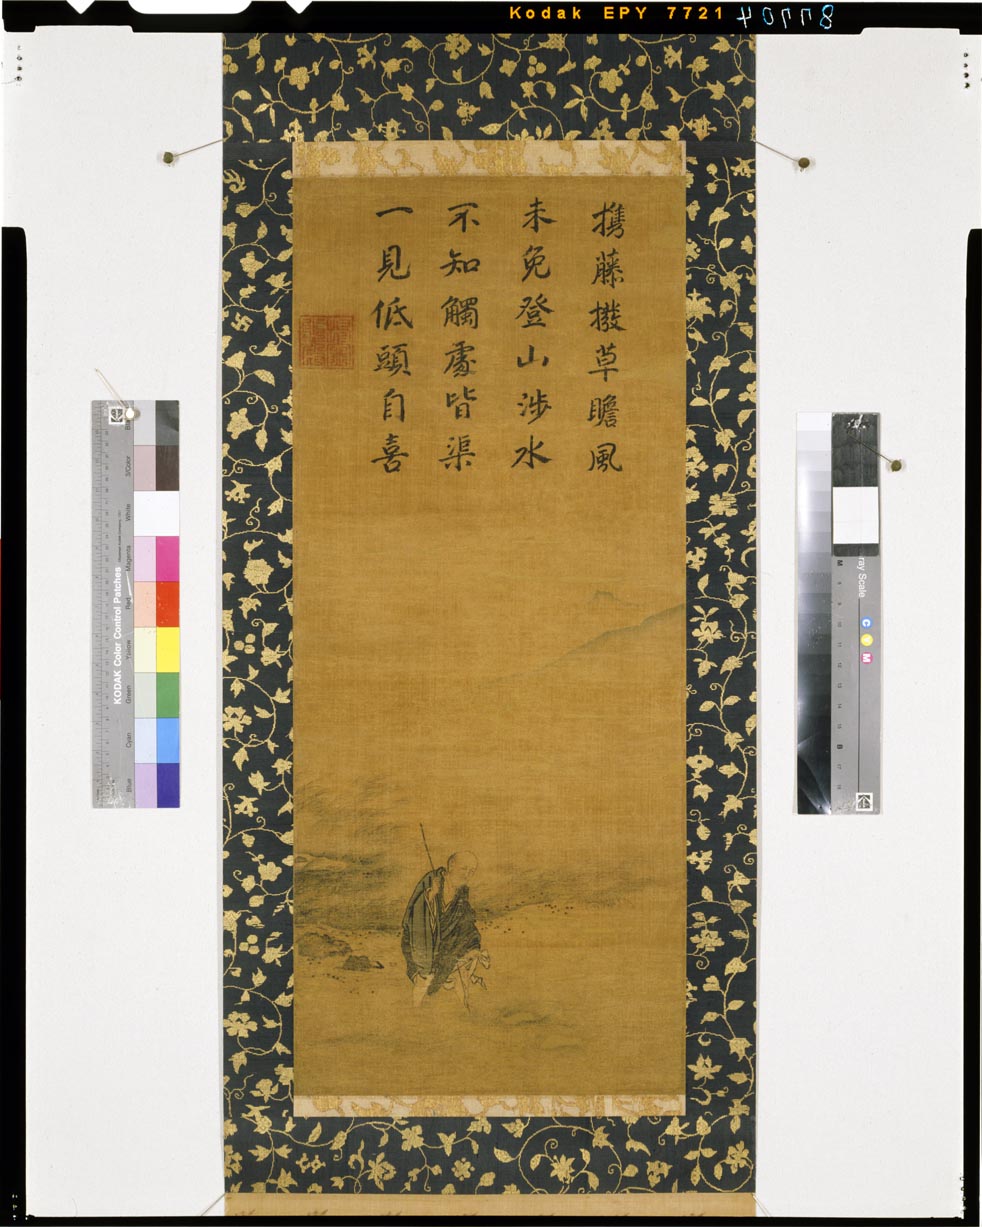 Kodak EPY 7721
87704
携藤撥草瞻風
未免登山渉水
不知觸處皆渠
一見低頭自喜
KODAK Color Control Patches
Blue
Cyan
Green
Yellow
Red
Magenta
White
3/Color
Black
Gray Scale
C
Y
M